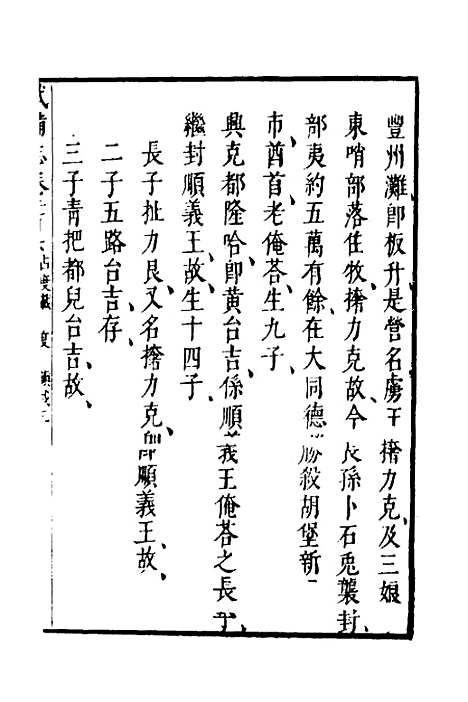 豐州灘、即板升是營名虜王撦力克、及三娘
東哨部落住牧、撦力克故、今長孫卜石兎襲封、
部夷約五萬有餘、在大同德勝殺胡堡新
市、酋首老俺荅、生九子、
興克都隆哈、即黃台吉、係順義王俺荅之長子、
繼封順義王、故、生十四子、
長子扯力艮、又名撦力克、即順義王、故、
二子五路台吉、存、
三子青把都兒台吉、故、
武備志卷二百